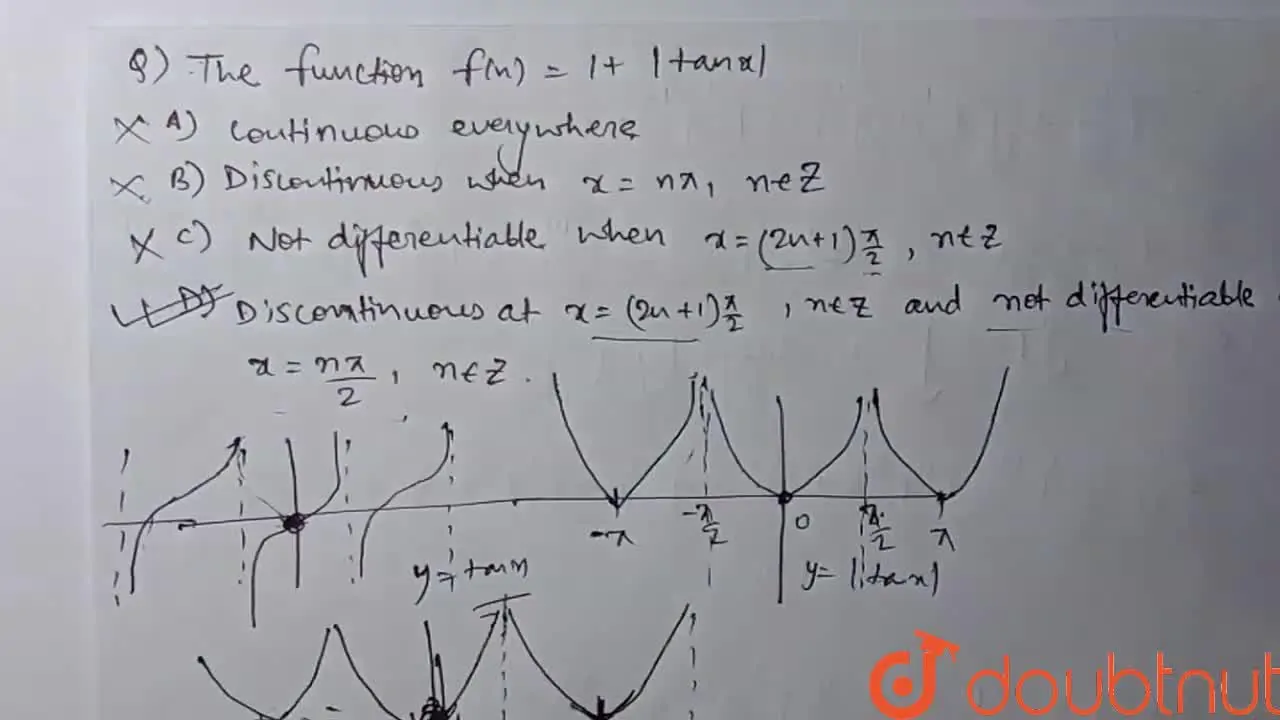 Q) The function f(x) = 1 + |tanx|
A) continuous everywhere
B) Discontinuous when x = nπ, n∈Z
C) Not differentiable when x = (2n+1)π/2, n∈Z
D) Discontinuous at x = (2n+1)π/2, n∈Z and not differentiable
x = nπ/2, n∈Z.
-π -π/2 0 π/2 π
y = tanx
y = |tanx|
doubtnut